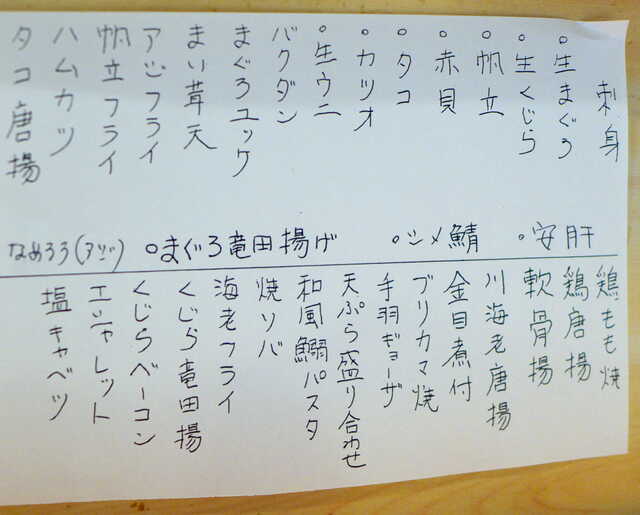 刺身
○生まぐろ
○生くじら
○帆立
○赤貝
○タコ
○カツオ
○生ウニ
バクダン
まぐろユッケ
まい茸天
アジフライ
帆立フライ
ハムカツ
タコ唐揚
なめろう(アジ) ○まぐろ竜田揚げ ○シメ鯖 ○安肝
鶏もも焼
鶏唐揚
軟骨揚
川海老唐揚
金目煮付
ブリカマ焼
手羽ギョーザ
天ぷら盛り合わせ
和風鰯パスタ
焼ソバ
海老フライ
くじら竜田揚
くじらベーコン
エシャレット
塩キャベツ